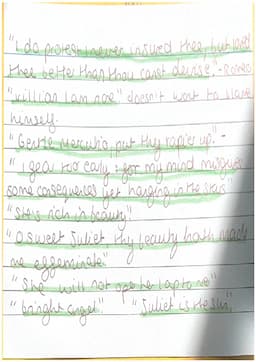 "I do protest I never injured thee, but love
thee better than thou canst devise." - Romeo
"villian I am none" doesn't want to blame
himself.
"Gentle Mercutio, put thy rapier up." -
"I fear too early: for my mind misgives
some consequences yet hanging in the stars"
"She is rich in beauty"
"O sweet Juliet, thy beauty hath made
me effeminate"
"She will not ope her lap to me"
"bright angel" "Juliet is the sun"